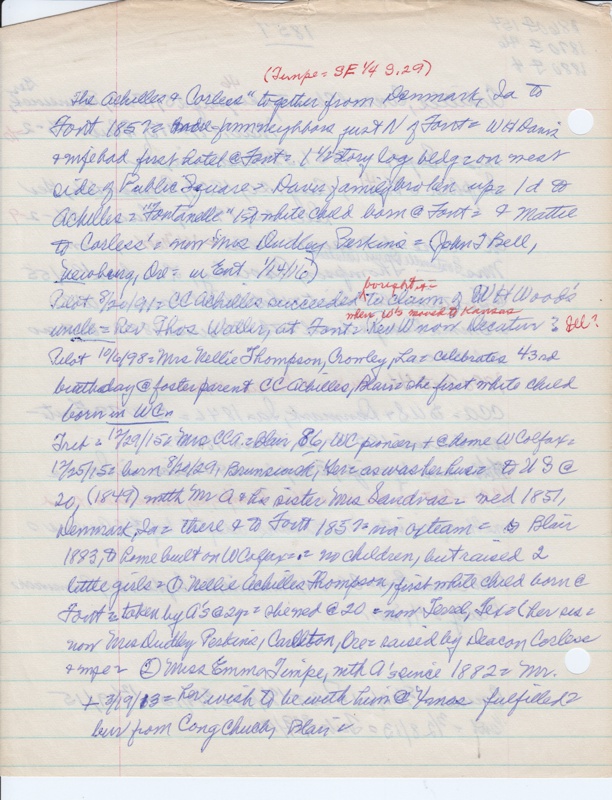 (Timpe = SE 1/4 S.29)
The Achilles & Corless" together from Denmark, Ia to
Font 1857 = farm neighbors just N of Font = WH Davis
& wife had first hotel @ Font = 1 1/2 story log bldg = on west
side of Public Square = Davis family broken up = 1 d to
Achilles = "Fontanelle" 1st white child born @ Font = & Mattie
to Corless' = now Mrs Dudley Perkins = (John T Bell,
Newberg, Ore = in Ent 1/14/16)
bought +=
Pilot 8/20/91 = CC Achilles succeeded to claim of WH Wood's
when W's moved to Kansas
uncle = Rev Thos Waller, at Font = Rev W now Decatur Ill?
Pilot 10/6/98 = Mrs Nellie Thompson, Crowley, La = celebrates 43rd
birthday @ foster parent CC Achilles, Blair = she first white child
born in WCn
Trib = 12/29/15 = Mrs CCA = Blair, 86, WC pioneer, + @ home W Colfax =
12/25/15 = born 8/20/29, Brunswick, Ger = as was her hus = to US @
20, (1849) with Mr A & his sister Mrs Sandras = wed 1851,
Denmark, Ia = there & to Font 1857 = via oxteam = to Blair
1883, & home built on W Colfax = = no children, but raised 2
little girls = ① Nellie Achilles Thompson, first white child born @
Font = taken by A's @ 2y = she wed @ 20 = now Tex = (her sis =
now Mrs Dudley Perkins, Carlton, Ore = raised by Deacon Corless
& wife = ② Miss Emma Timpe, with A's since 1882 = Mr.
+ 3/19/13 = her wish to be with him @ Xmas fulfilled =
bur from Cong Church, Blair =